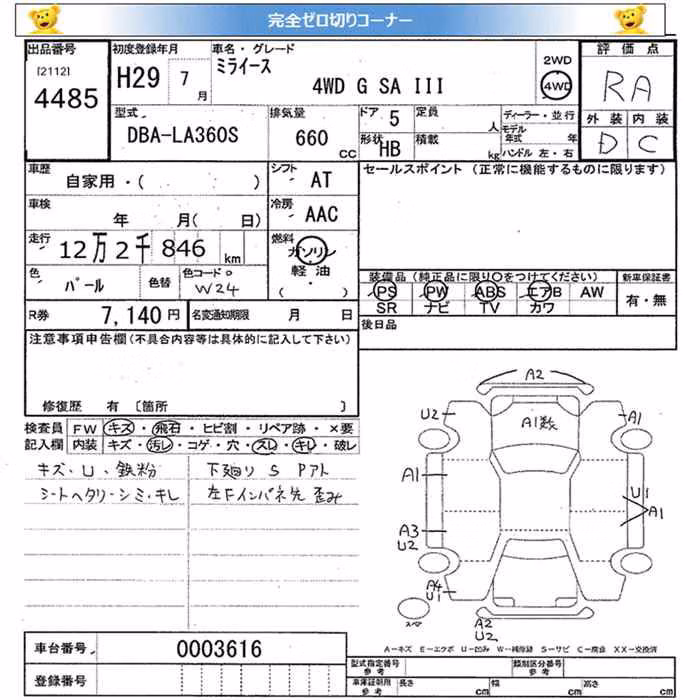 完全ゼロ切りコーナー
出品番号
[2112]
4485
初度登録年月
H29 7 月
車名・グレード
ミライース
4WD G SA III
2WD
4WD
評価点
RA
外装 内装
D C
型式
DBA-LA360S
排気量
660 CC
ドア 5
形状 HB
定員 人
積載 kg
ディーラー・並行
モデル年式 年
ハンドル 左・右
車歴
自家用・( )
シフト AT
車検 年 月( 日)
冷房 AAC
走行 12万2千846 km
燃料 ガソリン
軽油
・( )
色 パール
色替
色コード
W24
R券 7,140円
名変通知期限 月 日
セールスポイント (正常に機能するものに限ります)
装備品 (純正品に限り○をつけてください)
新車保証書
PS PW ABS エアB AW
SR ナビ TV カワ
有・無
後日品
注意事項申告欄(不具合内容等は具体的に記入して下さい)
修復歴 有 〔箇所 〕
検査員 FW キズ・飛石・ヒビ割・リペア跡・×要
記入欄 内装 キズ・汚し・コゲ・穴・スレ・キレ・破レ
キズ、U、鉄粉
シートヘタリ シミ・キレ
下廻り S Pアト
左Fインパネ先 歪み
A2
U2
A1数
A1
A1
U1
A1
A3
U2
A4
U1
A2
U2
A-キズ E-エクボ U-凹み W-補修跡 S-サビ C-腐食 XX-交換済
車台番号 0003616
登録番号
型式指定番号 参考
類別区分番号 参考
車庫証明用 参考 長さ cm 幅 cm 高さ cm